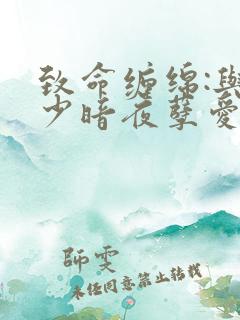 致命缠绵:與
少暗夜孽爱
師雯
未经同意禁止转载